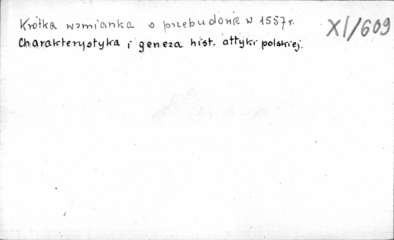 Krótka wzmianka o przebudowie w 1557r. XI/609
Charakterystyka i geneza hist. attyki polskiej.